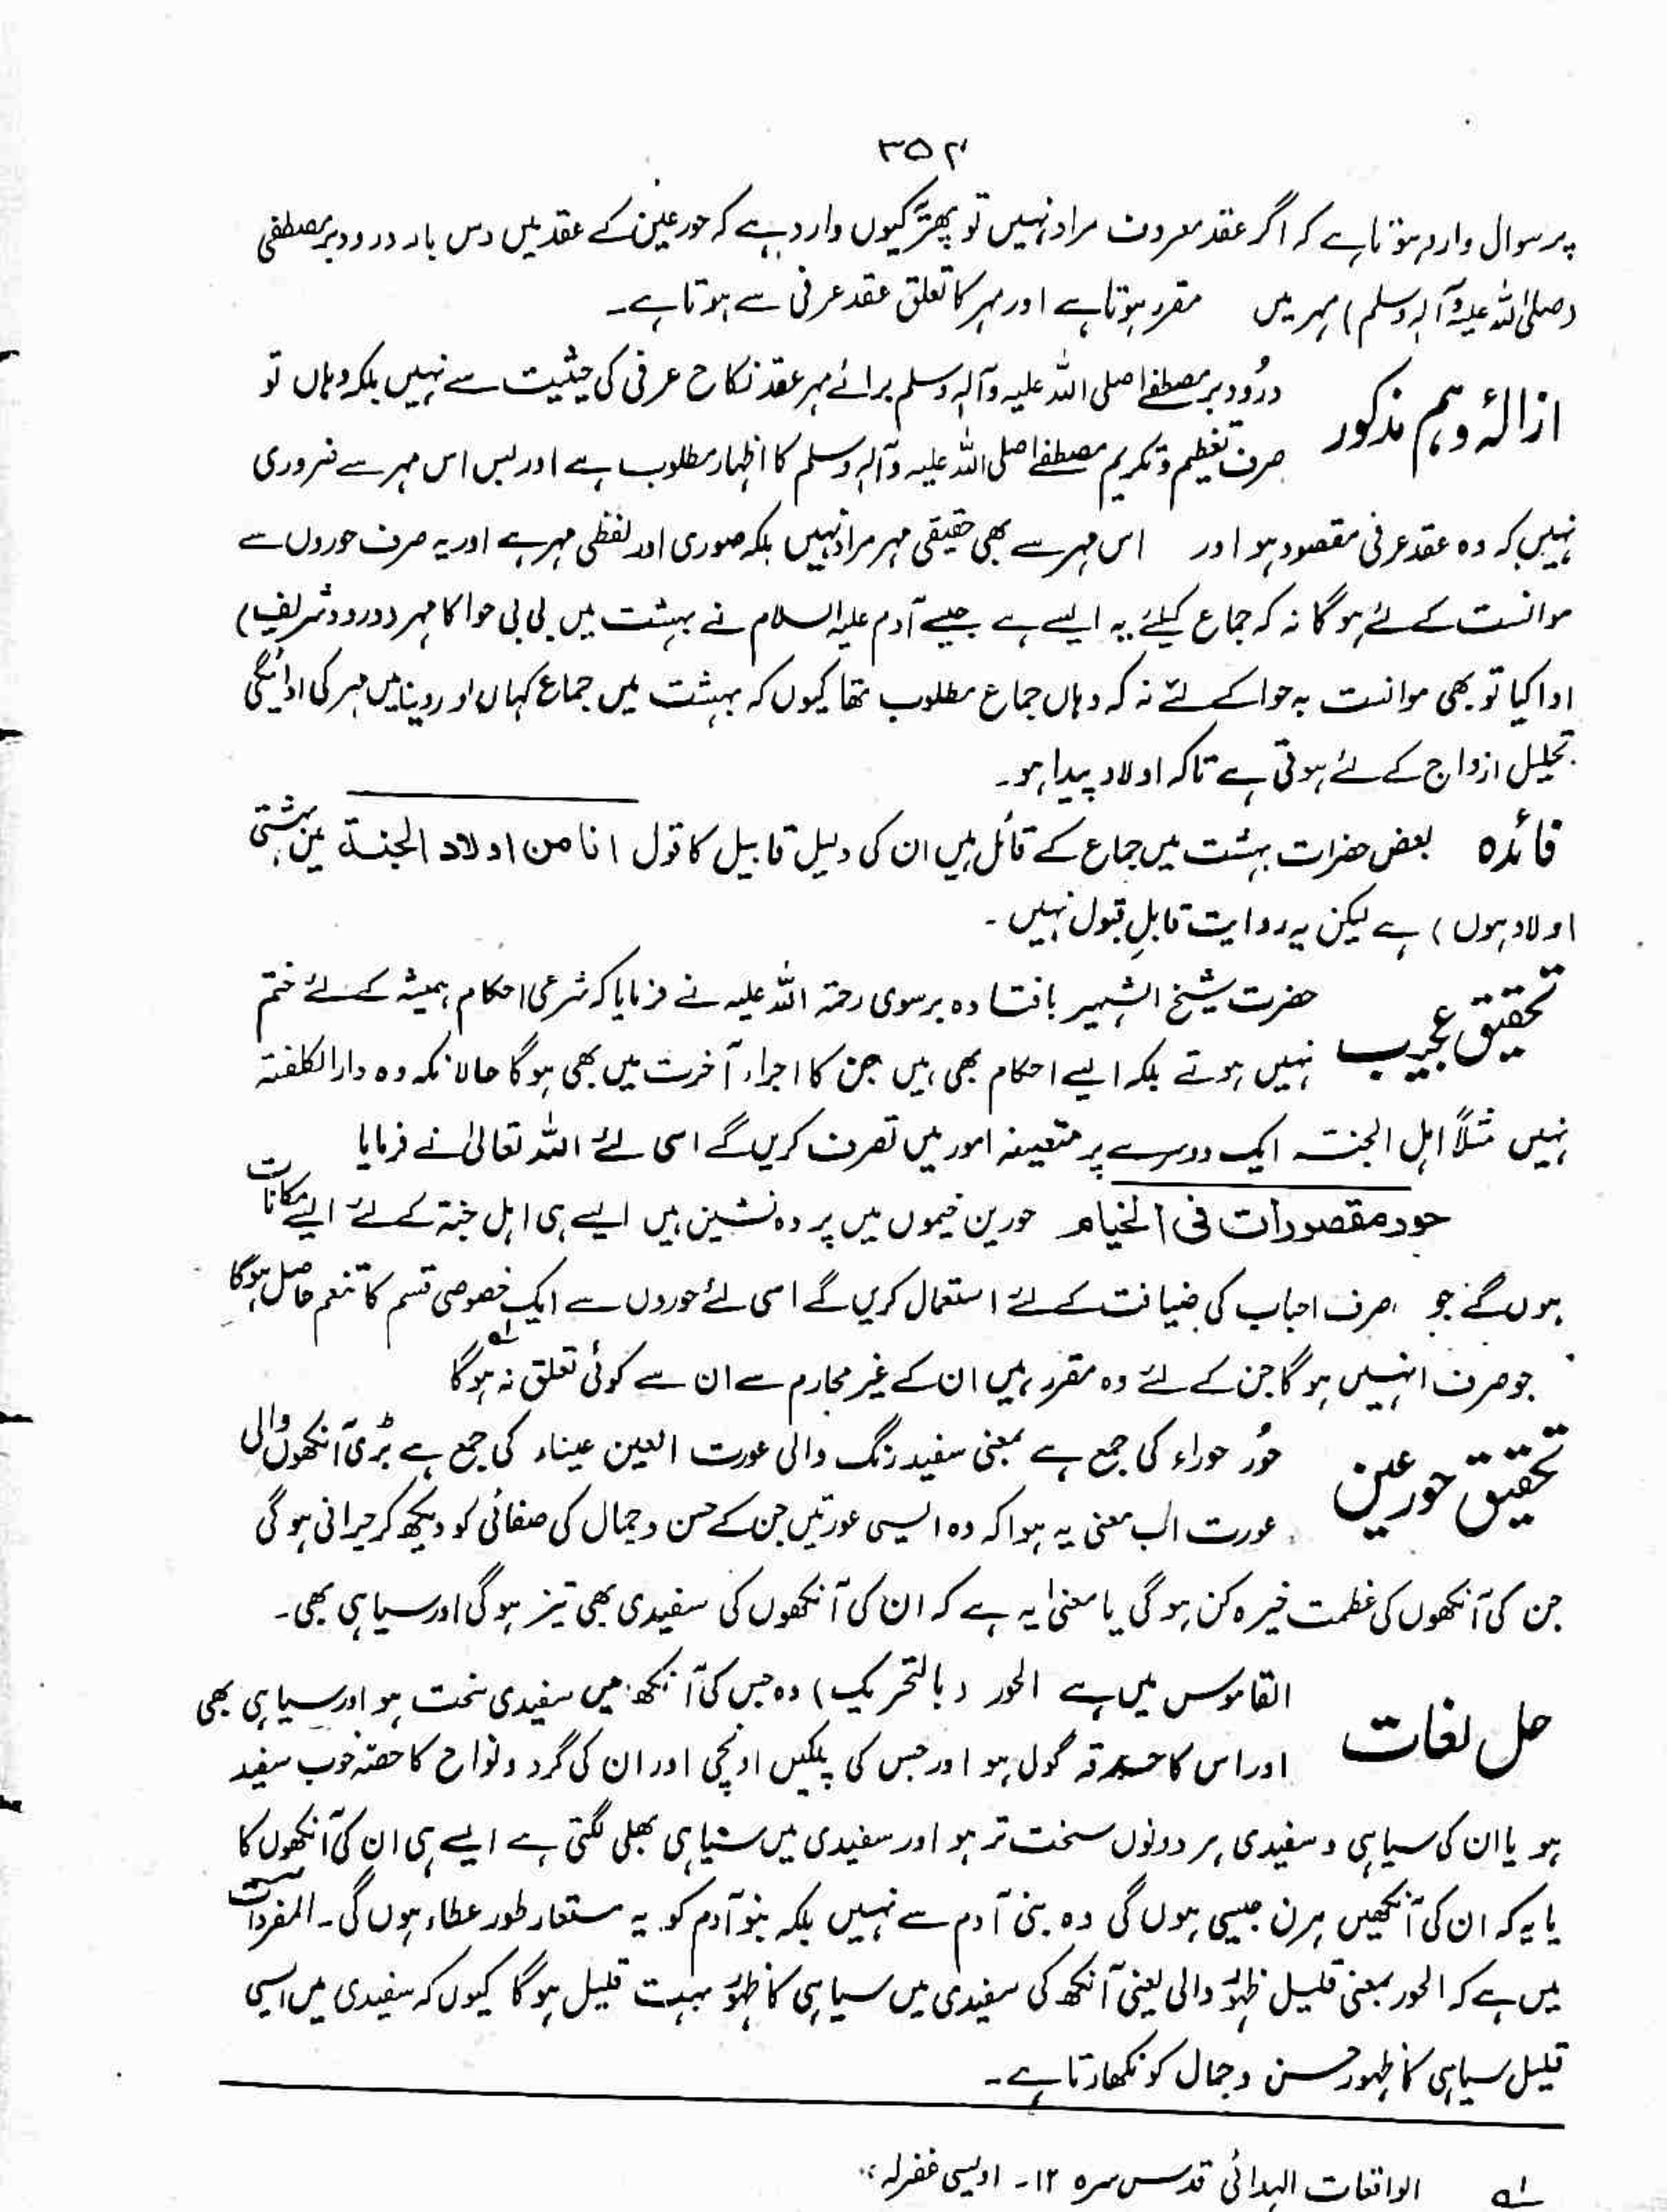 ۳۵۲
پر سوال وارد ہوتا ہے کہ اگر عقد معروف مراد نہیں تو پھر کیوں وارد ہے کہ حور عین کے عقد میں دس بار درود بر مصطفی
(صلی اللہ علیہ وآلہ وسلم) مہر میں مقرر ہوتا ہے اور مہر کا تعلق عقد عرفی سے ہوتا ہے۔
ازالۂ وہم مذکور درُود بر مصطفےٰ صلی اللہ علیہ وآلہ وسلم برائے مہر عقد نکاح عرفی کی حیثیت سے نہیں بلکہ وہاں تو
صرف تعظیم و تکریم مصطفےٰ صلی اللہ علیہ وآلہ وسلم کا اظہار مطلوب ہے اور بس اس مہر سے ضروری
نہیں کہ وہ عقد عرفی مقصود ہو اور اس مہر سے بھی حقیقی مہر مراد نہیں بلکہ صوری اور لفظی مہر ہے اور یہ صرف حوروں سے
موانست کے لئے ہوگا نہ کہ جماع کیلئے یہ ایسے ہے جیسے آدم علیہ السلام نے بہشت میں بی بی حوا کا مہر (درود شریف)
ادا کیا تو بھی موانست بہ حوا کے لئے نہ کہ وہاں جماع مطلوب تھا کیوں کہ بہشت میں جماع کہاں اور دنیا میں مہر کی ادائیگی
تحلیل ازواج کے لئے ہوتی ہے تاکہ اولاد پیدا ہو۔
فائدہ بعض حضرات بہشت میں جماع کے قائل ہیں ان کی دلیل قابیل کا قول انا من اولاد الجنۃ میں بہشتی
اولاد ہوں) ہے لیکن یہ روایت قابلِ قبول نہیں۔
تحقیق عجیب حضرت شیخ الشہیر بافتادہ برسوی رحمۃ اللہ علیہ نے فرمایا کہ شرعی احکام ہمیشہ کے لئے ختم
نہیں ہوتے بلکہ ایسے احکام بھی ہیں جن کا اجراء آخرت میں بھی ہوگا حالانکہ وہ دار الکلفتہ
نہیں مثلاً اہل الجنتہ ایک دوسرے پر متعینہ امور میں تصرف کریں گے اسی لئے اللہ تعالیٰ نے فرمایا
حور مقصورات فی الخیام حورین خیموں میں پردہ نشین ہیں ایسے ہی اہل جنۃ کے لئے ایسے مکانات
ہوں گے جو صرف احباب کی ضیافت کے لئے استعمال کریں گے اسی لئے حوروں سے ایک خصوصی قسم کا تنعم حاصل ہوگا
جو صرف انہیں ہوگا جن کے لئے وہ مقرر ہیں ان کے غیر محارم سے ان سے کوئی تعلق نہ ہوگا لہ
تحقیق حور عین حُور حوراء کی جمع ہے بمعنی سفید رنگ والی عورت العین عیناء کی جمع ہے بڑی آنکھوں والی
عورت اب معنی یہ ہوا کہ وہ ایسی عورتیں جن کے حسن و جمال کی صفائی کو دیکھ کر حیرانی ہوگی
جن کی آنکھوں کی عظمت خیرہ کن ہوگی یا معنیٰ یہ ہے کہ ان کی آنکھوں کی سفیدی بھی تیز ہوگی اور سیاہی بھی۔
حل لغات القاموس میں ہے الحور (بالتحریک) وہ جس کی آنکھ میں سفیدی سخت ہو اور سیاہی بھی
اور اس کا حدقہ گول ہو اور جس کی پلکیں اونچی اور ان کی گرد و نواح کا حصّہ خوب سفید
ہو یا ان کی سیاہی و سفیدی ہر دونوں سخت تر ہو اور سفیدی میں سیاہی بھلی لگتی ہے ایسے ہی ان کی آنکھوں کا
یا یہ کہ ان کی آنکھیں ہرن جیسی ہوں گی وہ بنی آدم سے نہیں بلکہ بنو آدم کو یہ مستعار طور عطاء ہوں گی۔ المفردات
میں ہے کہ الحور بمعنی قلیل ظہور والی یعنی آنکھ کی سفیدی میں سیاہی کا ظہور بہت قلیل ہوگا کیوں کہ سفیدی میں ایسی
قلیل سیاہی کا ظہور حسن و جمال کو نکھارتا ہے۔
لہ الواقعات الہدائی قدس سرہ ۱۲۔ اویسی غفرلہ